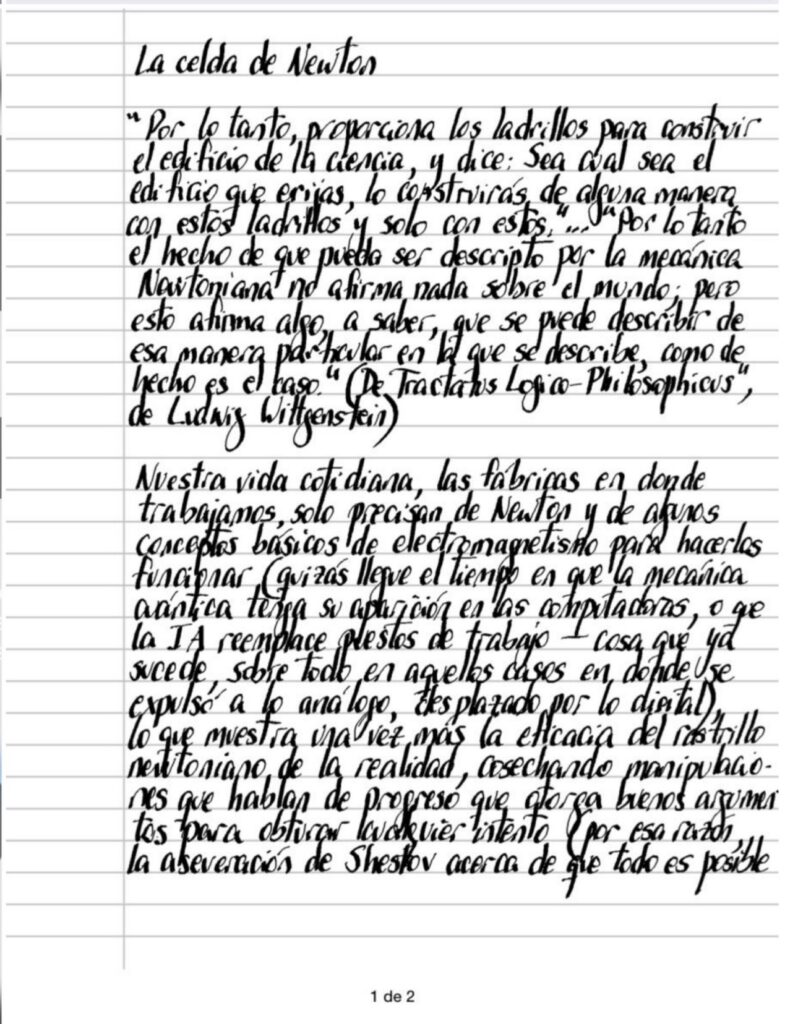 La celda de Newton
"Por lo tanto, proporciona los ladrillos para construir
el edificio de la ciencia, y dice: Sea cual sea el
edificio que erijas, lo construirás de alguna manera
con estos ladrillos y solo con estos."... "Por lo tanto
el hecho de que pueda ser descripto por la mecánica
Newtoniana no afirma nada sobre el mundo; pero
esto afirma algo, a saber, que se puede describir de
esa manera particular en la que se describe, como de
hecho es el caso." (De Tractatus Logico-Philosophicus",
de Ludwig Wittgenstein)
Nuestra vida cotidiana, las fábricas en donde
trabajamos, solo precisan de Newton y de algunos
conceptos básicos de electromagnetismo para hacerlos
funcionar (quizás llegue el tiempo en que la mecánica
cuántica tenga su aparición en las computadoras, o que
la IA reemplace puestos de trabajo - cosa que ya
sucede, sobre todo en aquellos casos en donde se
expulsó a lo análogo, desplazado por lo digital),
lo que muestra una vez más la eficacia del rastrillo
newtoniano de la realidad, cosechando manipulacio-
nes que hablan de progreso que otorga buenos argumen
tos para obturar cualquier intento (por esa razón,
la aseveración de Shestov acerca de que todo es posible
1 de 2